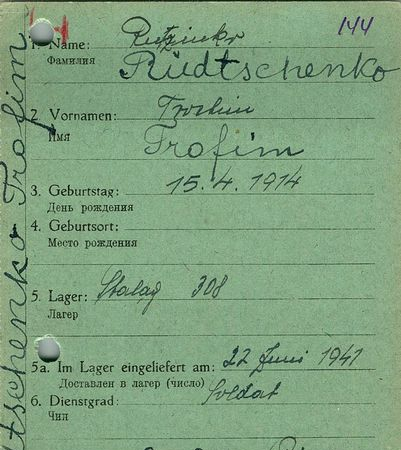 144
1. Name:
Фамилия
Rüdtschenko
2. Vornamen:
Имя
Trofim
3. Geburtstag: 15.4.1914
День рождения
4. Geburtsort:
Место рождения
5. Lager: Stalag 308
Лагерь
5a. Im Lager eingeliefert am: 22 Juni 1941
Доставлен в лагер (число)
6. Dienstgrad: Soldat
Чин
dtschenko Trofim